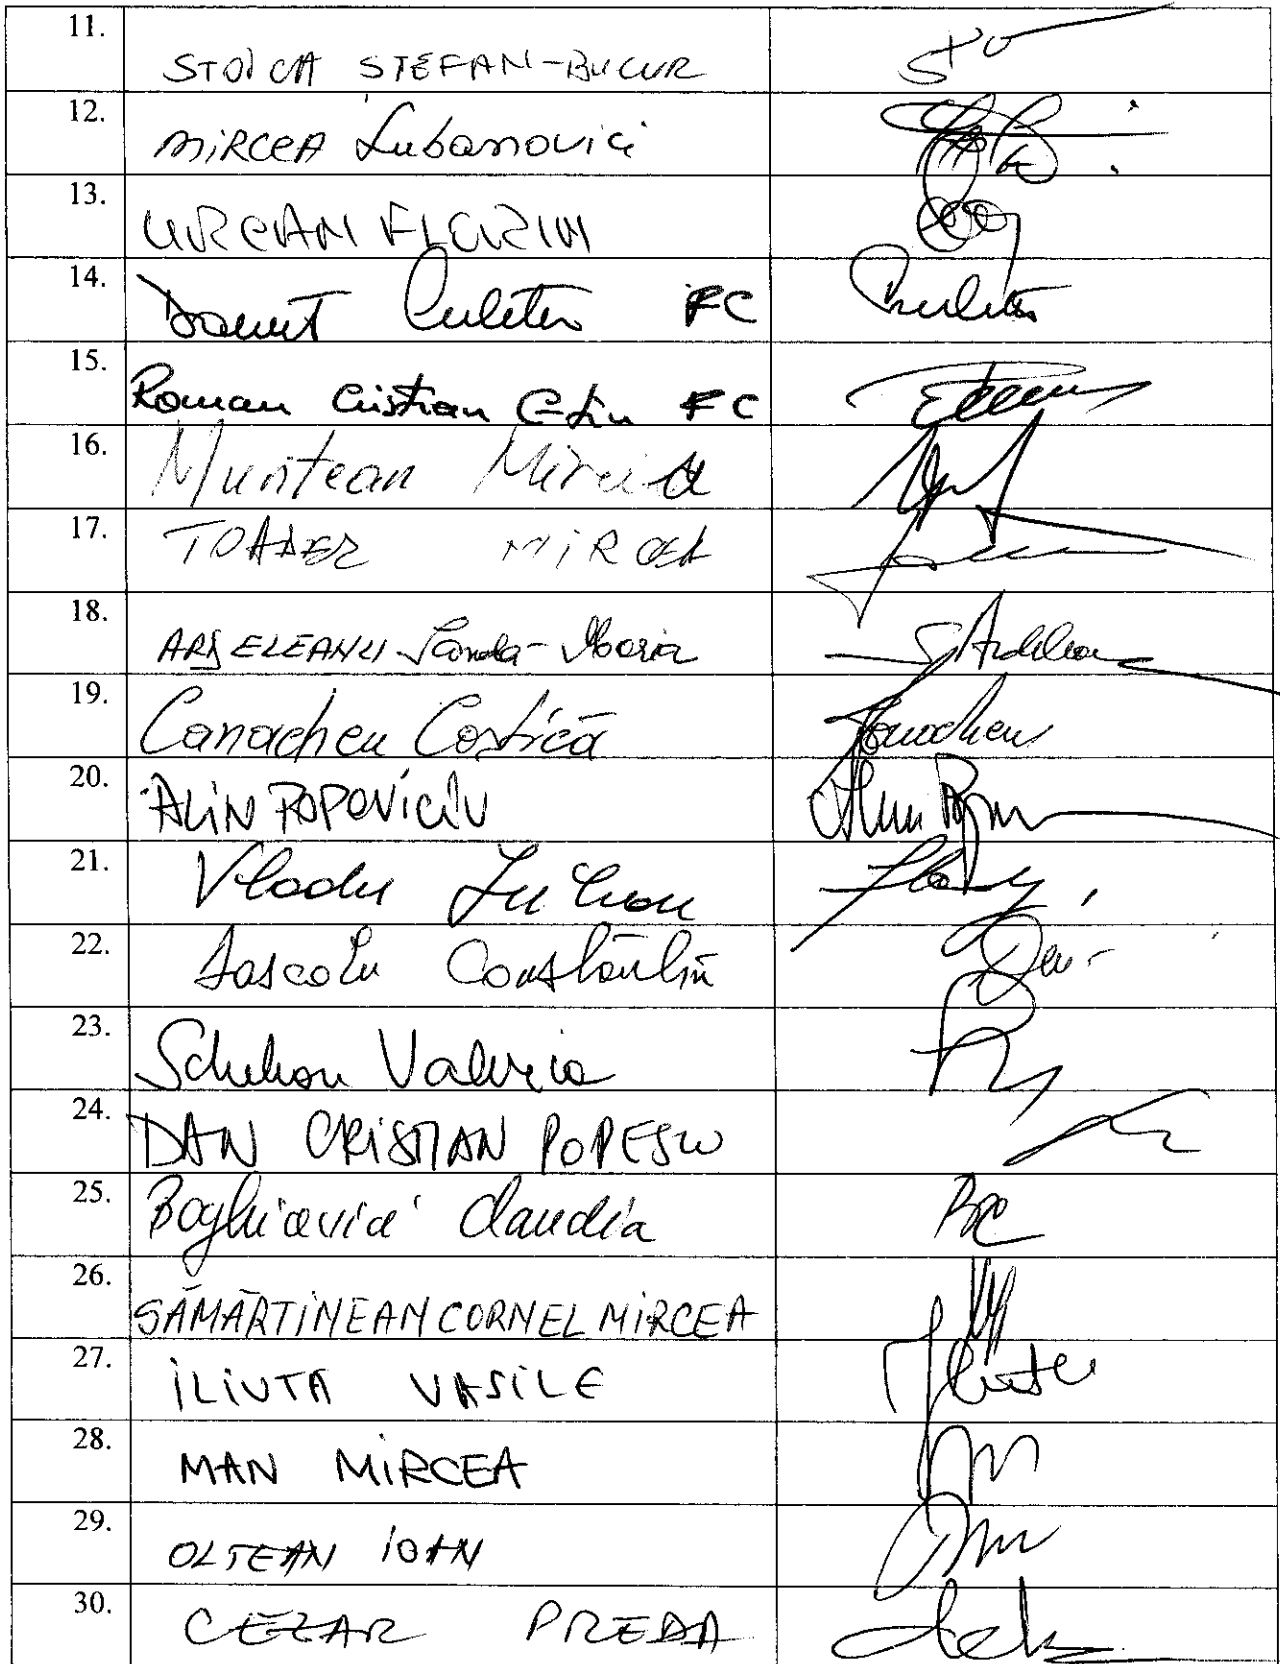 11. STOICA STEFAN-BUCUR
12. MIRCEA Lubanovici
13. URCAN FLORIN
14. Danut Culetu FC
15. Roman Cristian C-tin FC
16. Muntean Mircea
17. TOADER MIRCEA
18. ARDELEANU Sanda-Maria
19. Canacheu Costică
20. ALIN POPOVICIU
21. Vladu Iulian
22. Dascalu Constantin
23. Schelean Valeria
24. DAN CRISTIAN POPESCU
25. Boghicevici Claudia
26. SĂMĂRTINEAN CORNEL MIRCEA
27. ILIUTA VASILE
28. MAN MIRCEA
29. OLTEAN IOAN
30. CEZAR PREDA